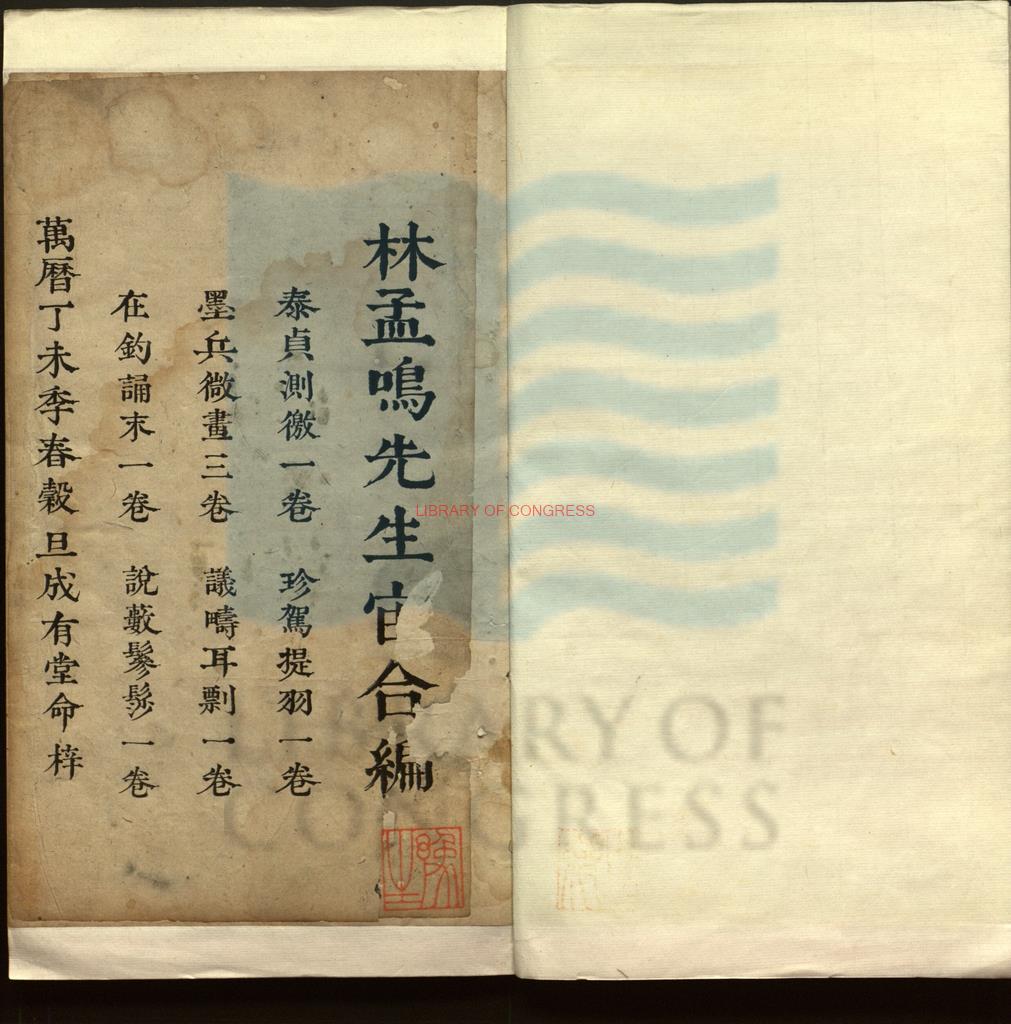 林孟鳴先生官合編
泰貞測徼一卷 珍駕提羽一卷
墨兵微畫三卷 議疇耳剽一卷
在釣誦末一卷 說藪鬖髿一卷
萬曆丁未季春穀旦成有堂命梓
LIBRARY OF CONGRESS
LIBRARY OF
CONGRESS